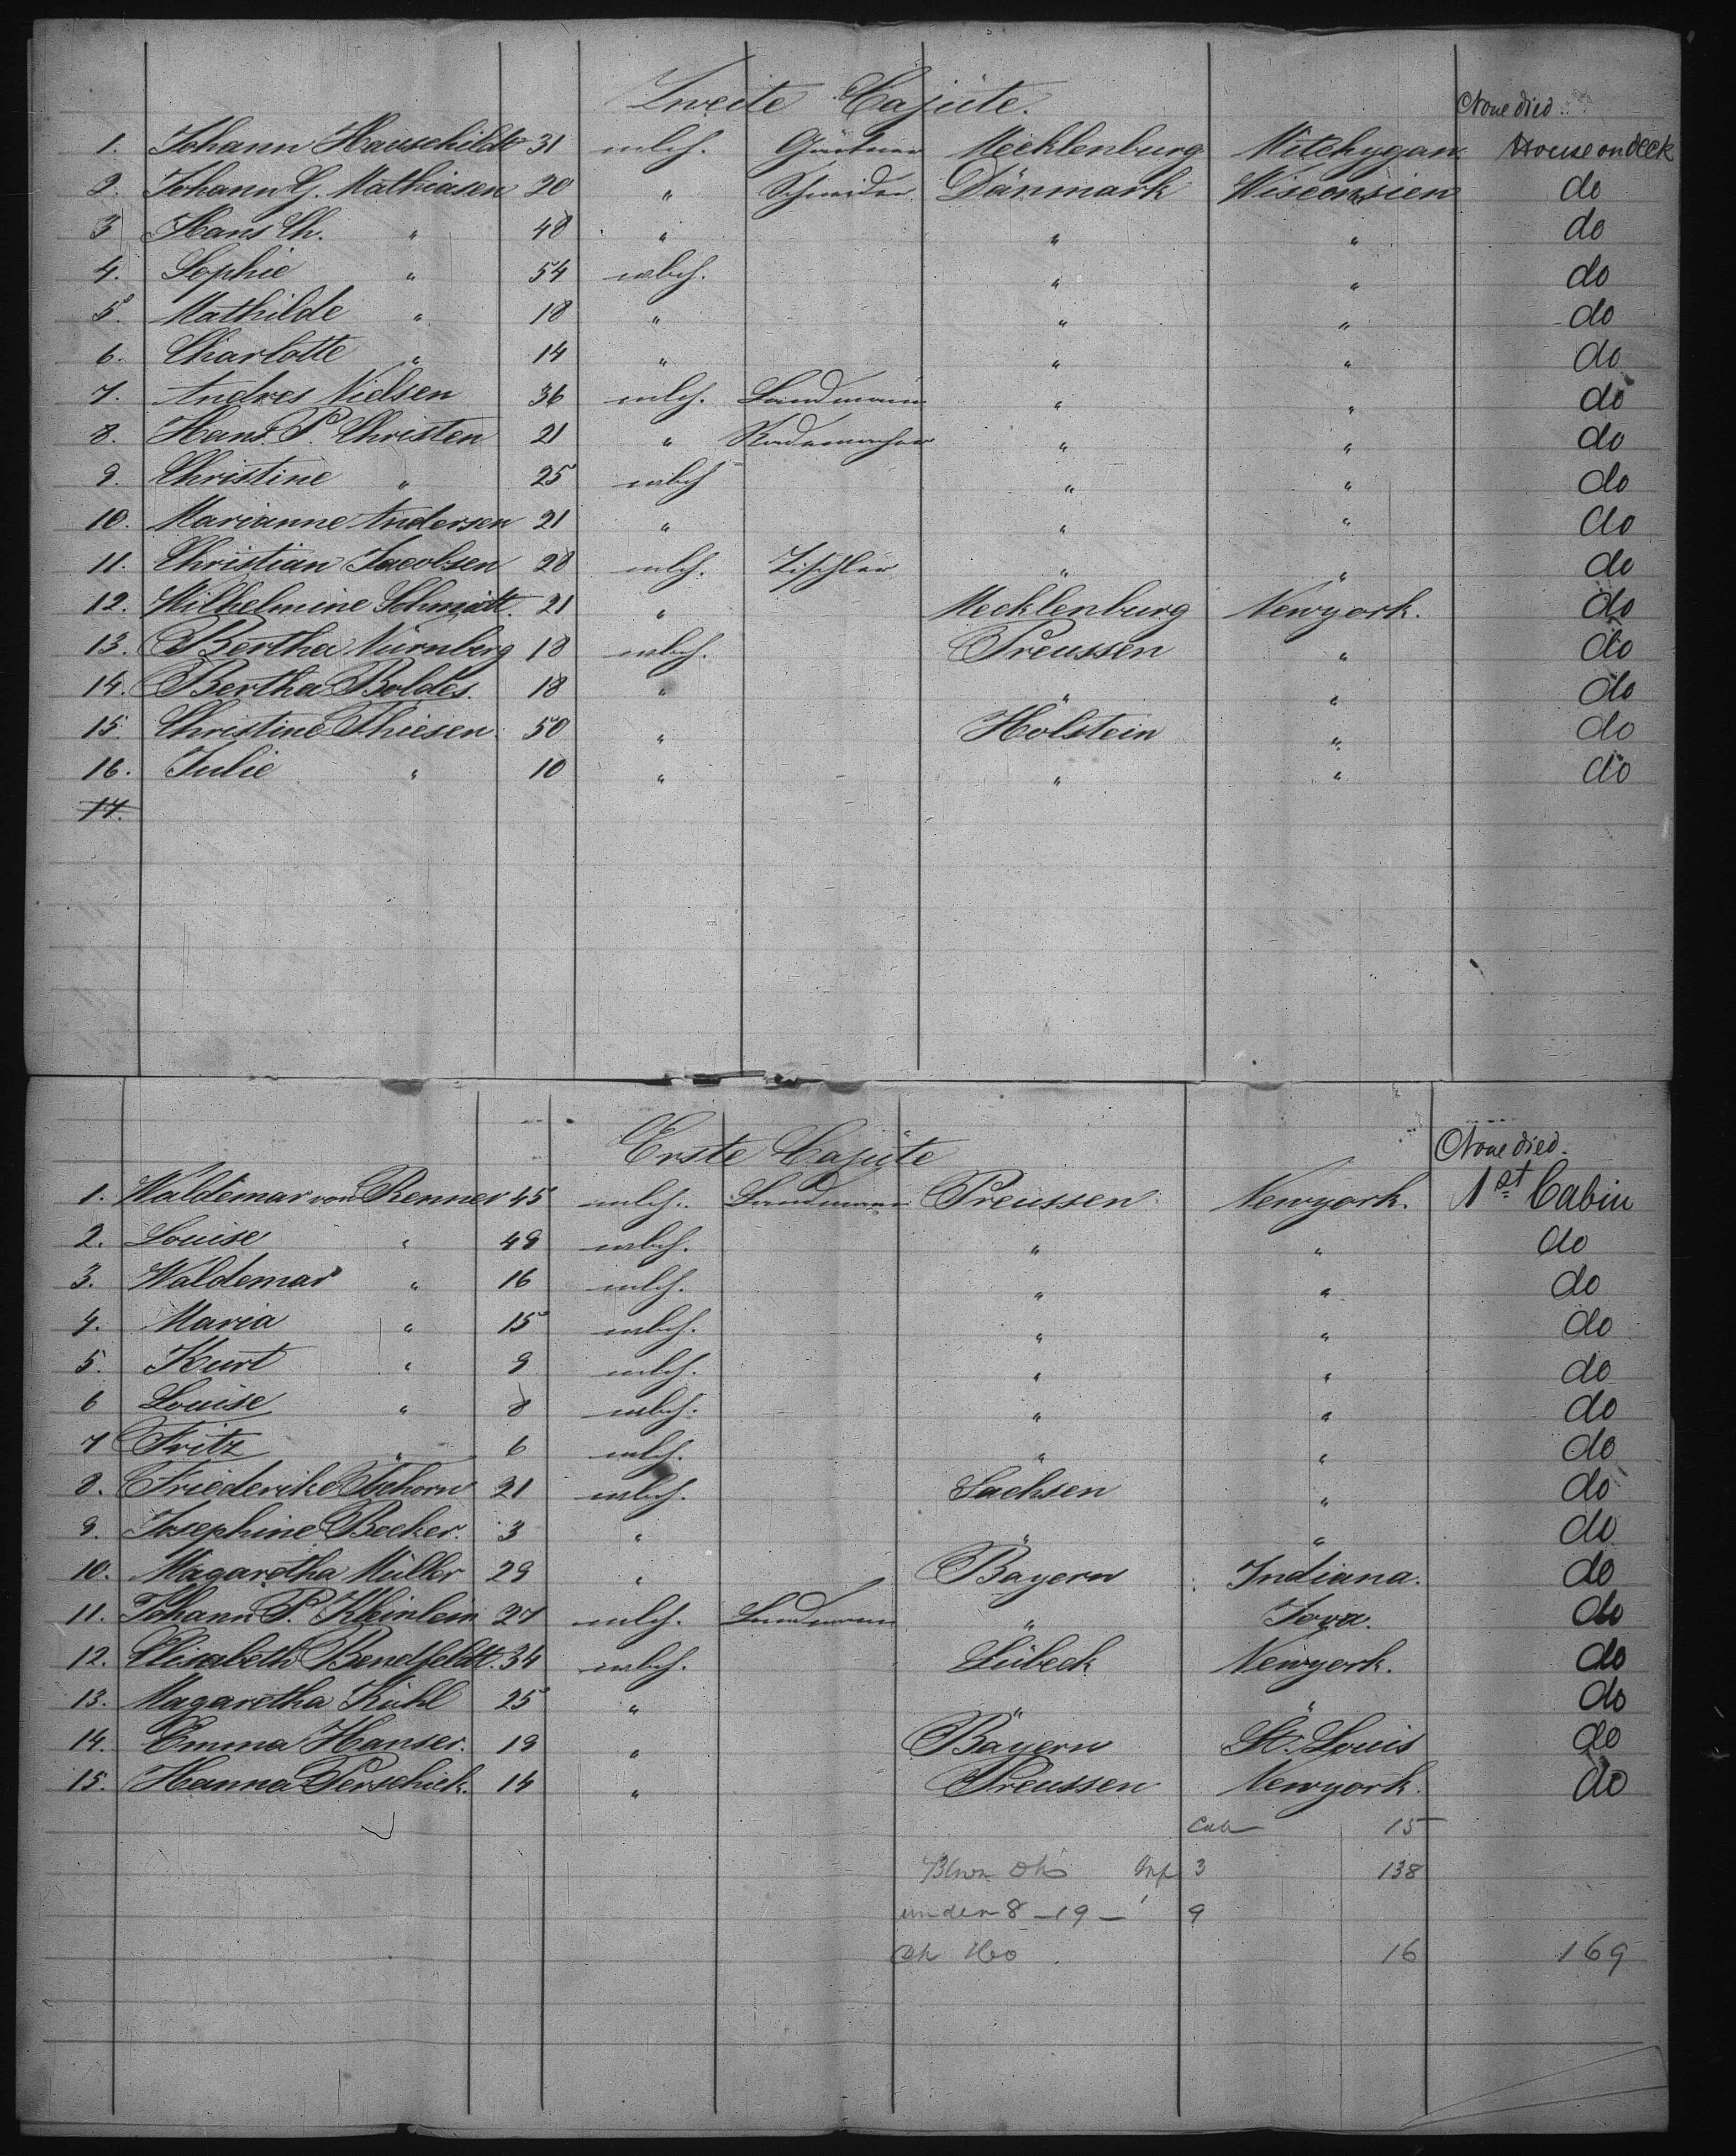 Zweite Cajüte.
None died
1. Johann Hauschildt 31 mlch. Gärtner Mecklenburg Mitchygan House on deck
2. Johann G. Mathiasen 20 " Schneider Dänmark Wisconsien do
3 Hans Ch. " 48 " " " do
4. Sophie " 54 wbch. " " do
5. Mathilde " 18 " " " do
6. Charlotte " 14 " " " do
7. Andres Nielsen 36 mlch. Landmann " " do
8. Hans P. Christen 21 " Rademacher " " do
9. Christine " 25 wbch " " do
10. Marianne Andersen 21 " " " do
11. Christian Jacobsen 28 mlch. Tischler " " do
12. Wilhelmine Schmidt. 21 " Mecklenburg Newyork. do
13. Bertha Nürnberg 18 wbch. Preussen " do
14. Bertha Boldes. 18 " " " do
15. Christine Thiesen. 50 " Holstein " do
16. Julie " 10 " " " do
17.
Erste Cajüte
None died.
1. Waldemar von Renner 45 mlch. Landmann Preussen Newyork. 1st Cabin
2. Louise " 49 wbch. " " do
3. Waldemar " 16 mlch. " " do
4. Maria " 15 wbch. " " do
5. Kurt " 9 mlch. " " do
6 Louise " 8 wbch. " " do
7 Fritz " 6 mlch. " " do
8. Friederike Tschorn 21 wbch. Sachsen " do
9. Josephine Becker. 3 " " " do
10. Magaretha Müller 29 " Bayern Indiana. do
11. Johann P. Kleinlein 27 mlch. Landmann " Iova. do
12. Elisabeth Bendfeldt. 34 wbch. Lübeck Newyork. do
13. Magaretha Kühl 25 " " " do
14. Emma Hanser. 19 " Bayern St. Louis do
15. Hanna Perschick. 14 " Preussen Newyork. do
Cab 15
Inf 3 138
under 8 - 19 - 9
16 169